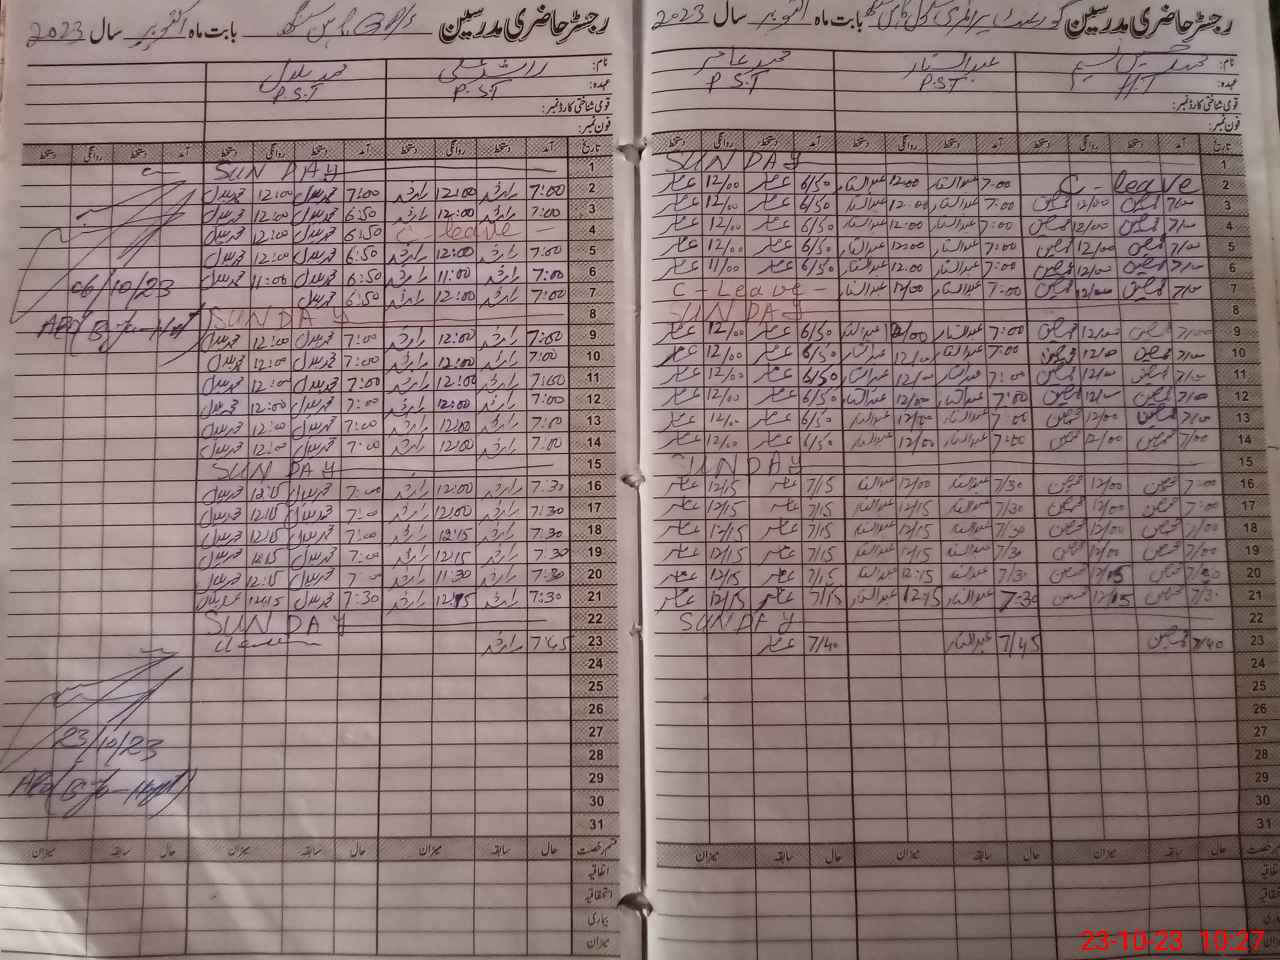 رجسٹر حاضری مدرسین گورنمنٹ پرائمری سکول بابت ماہ اکتوبر سال 2023
نام: محمد عبدالستار محمد عامر
عہدہ: H.T P.S.T P.S.T
قومی شناختی کارڈ نمبر:
فون نمبر:
تاریخ آمد دستخط روانگی دستخط آمد دستخط روانگی دستخط آمد دستخط روانگی دستخط
1 SUNDAY
2 C - leave 7:00 عبدالستار 12:00 عبدالستار 6/50 عامر 12/00 عامر
3 7/00 12/00 7:00 عبدالستار 12:00 عبدالستار 6/50 عامر 12/00 عامر
4 7/00 12/00 7:00 عبدالستار 12:00 عبدالستار 6/50 عامر 12/00 عامر
5 7/00 12/00 7:00 عبدالستار 12:00 عبدالستار 6/50 عامر 12/00 عامر
6 7/00 12/00 7:00 عبدالستار 12:00 عبدالستار 6/50 عامر 11/00 عامر
7 7/00 12/00 7:00 عبدالستار 12/00 عبدالستار C - Leave -
8 SUNDAY
9 7/00 12/00 7:00 عبدالستار 12/00 عبدالستار 6/50 عامر 12/00 عامر
10 7/00 12/00 7:00 عبدالستار 12/00 عبدالستار 6/50 عامر 12/00 عامر
11 7/00 12/00 7:00 عبدالستار 12/00 عبدالستار 6/50 عامر 12/00 عامر
12 7/00 12/00 7:00 عبدالستار 12/00 عبدالستار 6/50 عامر 12/00 عامر
13 7/00 12/00 7:00 عبدالستار 12/00 عبدالستار 6/50 عامر 12/00 عامر
14 7/00 12/00 7:00 عبدالستار 12/00 عبدالستار 6/50 عامر 12/00 عامر
15 SUNDAY
16 7:00 12/00 7/30 عبدالستار 12/00 عبدالستار 7/15 عامر 12/15 عامر
17 7:00 12/00 7/30 عبدالستار 12/15 عبدالستار 7/15 عامر 12/15 عامر
18 7/00 12/00 7/30 عبدالستار 12/15 عبدالستار 7/15 عامر 12/15 عامر
19 7/00 12/00 7/30 عبدالستار 12/15 عبدالستار 7/15 عامر 12/15 عامر
20 12/15 7/30 عبدالستار 12:15 عبدالستار 7/15 عامر 12/15 عامر
21 7/30 12/15 7:30 عبدالستار 12:15 عبدالستار 7/15 عامر 12/15 عامر
22 SUNDAY
23 7/40 7/45 عبدالستار 7/40 عامر
24
25
26
27
28
29
30
31
حال سابقہ میزان حال سابقہ میزان حال سابقہ میزان
اتفاقیہ
استحقاقیہ
بیماری
میزان
23-10-23 10:27
رجسٹر حاضری مدرسین GPS بابت ماہ اکتوبر سال 2023
نام: راشد علی محمد بلال
عہدہ: P.S.T P.S.T
قومی شناختی کارڈ نمبر:
فون نمبر:
تاریخ آمد دستخط روانگی دستخط آمد دستخط روانگی دستخط آمد دستخط روانگی دستخط
1 SUNDAY
2 7:00 راشد 12:00 راشد 7:00 محمد بلال 12:00 محمد بلال
3 7:00 راشد 12:00 راشد 6:50 محمد بلال 12:00 محمد بلال
4 C leave 6:50 محمد بلال 12:00 محمد بلال
5 7:00 راشد 12:00 راشد 6:50 محمد بلال 12:00 محمد بلال
6 7:00 راشد 11:00 راشد 6:50 محمد بلال 11:00 محمد بلال
06/10/23
7 7:00 راشد 12:00 راشد 6:50 محمد بلال
8 SUNDAY
9 7:00 راشد 12:00 راشد 7:00 محمد بلال 12:00 محمد بلال
10 7:00 راشد 12:00 راشد 7:00 محمد بلال 12:00 محمد بلال
11 7:00 راشد 12:00 راشد 7:00 محمد بلال 12:00 محمد بلال
12 7:00 راشد 12:00 راشد 7:00 محمد بلال 12:00 محمد بلال
13 7:00 راشد 12:00 راشد 7:00 محمد بلال 12:00 محمد بلال
14 7:00 راشد 12:00 راشد 7:00 محمد بلال 12:00 محمد بلال
15 SUNDAY
16 7:30 راشد 12:00 راشد 7:00 محمد بلال 12:15 محمد بلال
17 7:30 راشد 12:00 راشد 7:00 محمد بلال 12:15 محمد بلال
18 7:30 راشد 12:15 راشد 7:00 محمد بلال 12:15 محمد بلال
19 7:30 راشد 12:15 راشد 7:00 محمد بلال 12:15 محمد بلال
20 7:30 راشد 11:30 راشد محمد بلال 12:15 محمد بلال
21 7:30 راشد 12:15 راشد 7:30 محمد بلال 12:15 محمد بلال
22 SUNDAY
23 7:45 راشد
24
25
26
27
23/10/23
28
29
30
31
قسم رخصت حال سابقہ میزان حال سابقہ میزان حال سابقہ میزان
اتفاقیہ
استحقاقیہ
بیماری
میزان